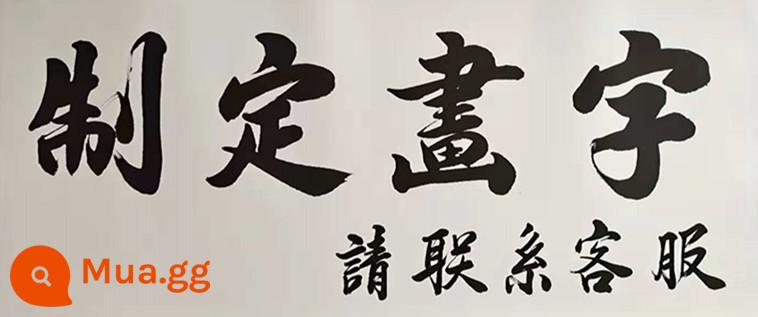 制定畫字
請联系客服
Mua.gg